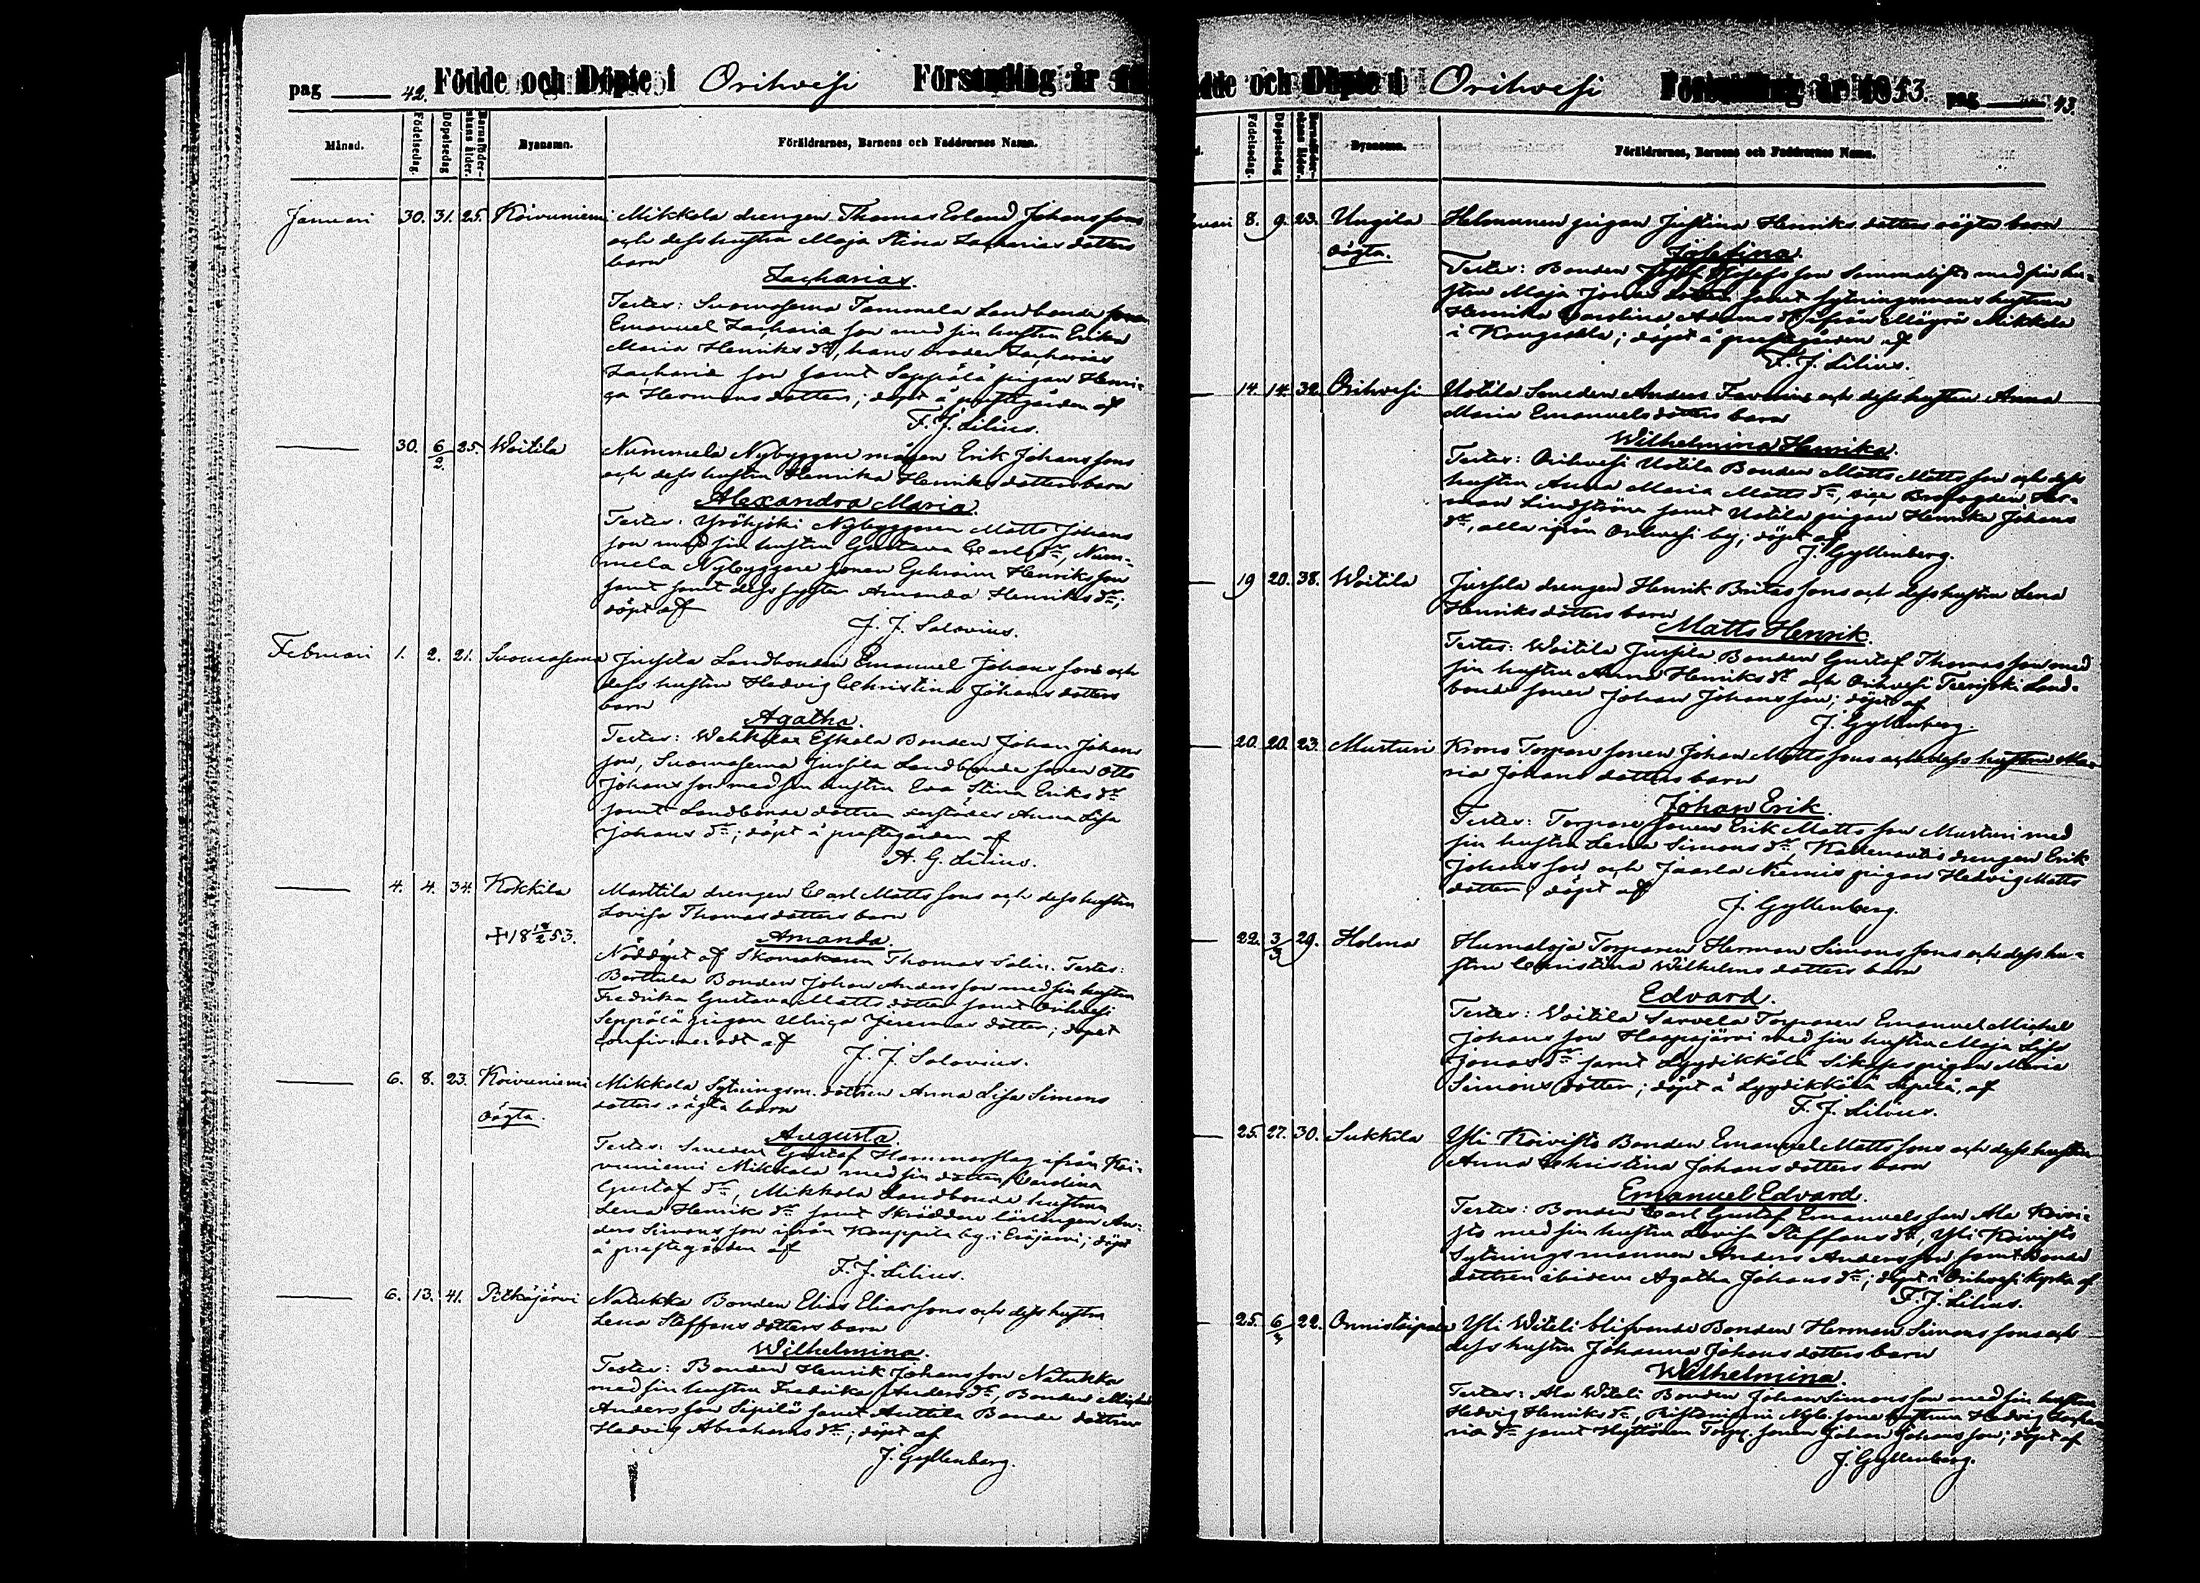 pag 42. Födde och Döpte i Orihvesi Församling år 18
Månad. Födelsedag. Döpelsedag Barnaföderskans ålder. Byanamn. Föräldrarnes, Barnens och Faddrarnes Namn.
Januari 30. 31. 25. Koivuniemi Mikkola drengen Thomas Erland Johans sons
och dess hustru Maja Stina Zacharias dotters
barn
Zacharias.
Testes: Suomasema Tammela Landbonde sonen
Emanuel Zacharie son med sin hustru Erika
Maria Henriks dr, hans broder Zacharias
Zacharie son samt Seppälä pigan Henri-
ca Hermans dotter; döpt å prestegården af
F. J. Lilius.
30. 6/2 25. Woitila Nummela Nybyggare mågen Erik Johans sons
och dess hustru Henrika Henriks dotters barn
Alexandra Maria.
Testes: Yröhjöki Nybyggaren Matts Johans
son med sin hustru Gustava Carls dr, Num-
mela Nybyggare sonen Ephraim Henriks son
samt dess syster Amanda Henriks dr;
döpt af
J. J. Salovius.
Februari 1. 2. 21. Suomasema Jussila Landbonden Emanuel Johans sons och
dess hustru Hedvig Christina Johans dotters
barn
Agatha.
Testes: Wehkalax Eskola Bonden Johan Johans
son, Suomasema Jussila Landbonde sonen Otto
Johans son med sin hustru Eva Stina Eriks dr
samt Landbonde dottren derstädes Anna Lisa
Johans dr; döpt å prestegården af
A. G. Lilius.
4. 4. 34. Kokkila Marttila drengen Carl Matts sons och dess hustru
Lovisa Thomas dotters barn
+ 18 18/2 53. Amanda.
Nöddöpt af Skomakaren Thomas Salin. Testes:
Berttula Bonden Johan Anders son med sin hustru
Fredrika Gustava Matts dotter samt Orihvesi
Seppälä pigan Ulrica Jeremias dotter; döpet
confirmeradt af
J. J. Salovius.
6. 8. 23. Koivuniemi Mikkola Sytningsm. dottren Anna Lisa Simons
dotters oägta barn
oägta.
Augusta.
Testes: Smeden Gustaf Hammarslag ifrån Koi-
vuniemi Mikkola med sin dotter Carolina
Gustaf dr, Mikkola Landbonde hustrun
Lena Henriks dr samt Skräddare lärlingen An-
ders Simons son ifrån Kauppila by i Eräjärvi; döpt
å prestegården af
F. J. Lilius.
6. 13. 41. Pitkäjärvi Natukka Bonden Elias Elias sons och dess hustru
Lena Steffans dotters barn
Wilhelmina.
Testes: Bonden Henrik Johans son Natukka
med sin hustru Fredrika Anders dr, Bonden Michel
Anders son Sipilä samt Anttila Bonde dottren
Hedvig Abrahams dr; döpt af
J. Gyllenberg.
dde och Döpte i Orihvesi Församling år 1853. pag 43.
Födelsedag. Döpelsedag Barnaföderskans ålder. Byanamn. Föräldrarnes, Barnens och Faddrarnes Namn.
ruari 8. 9. 23. Uugila Helmanen pigan Justina Henriks dotters oägta barn
oägta. Josefina.
Testes: Bonden Josef Josefs son Sommalisto med sin hu-
stru Maja Jonas dotter samt Sytningsmans hustrun
Henrika Carolina Adams dr ifrån Mägrö Mikkola
i Kangasala; döpt å prestegården af
F. J. Lilius.
14. 14. 32. Orihvesi Uotila Smeden Anders Favorin och dess hustru Anna
Maria Emanuels dotters barn
Wilhelmina Henrika.
Testes: Orihvesi Uotila Bonden Matts Matts son och dess
hustru Anna Maria Matts dr, vice Brofogden Her-
man Lindström samt Uotila pigan Henrika Johans
dr, alla ifrån Orihvesi by; döpt af
J. Gyllenberg.
19 20. 38. Woitila Jussila drengen Henrik Britas sons och dess hustru Lena
Henriks dotters barn
Matts Henrik.
Testes: Woitila Jussila Bonden Gustaf Thomas son med
sin hustru Anna Henriks dr och Orihvesi Teerijoki Land-
bonde sonen Johan Johans son; döpt af
J. Gyllenberg.
20. 20. 23. Musturi Krono Torpare sonen Johan Matts sons och dess hustru Ma-
ria Johans dotters barn
Johan Erik.
Testes: Torpare sonen Erik Matts son Musturi med
sin hustru Lena Simons dr, drengen Erik
Johans son och Jaarla Niemis pigan Hedvig Matts
dotter; döpt af
J. Gyllenberg.
22. 3/3 29. Holma Humaloja Torparen Herman Simons sons och dess hu-
stru Christina Wilhelms dotters barn
Edvard.
Testes: Woitila Sarvela Torparen Emanuel Michel
Johans son Haapajärvi med sin hustru Maja Lisa
Jonas dr samt Lyydikkälä pigan Maria
Simons dotter; döpt å Lyydikkälä Sipilä, af
F. J. Lilius.
25. 27. 30. Sukkila Yli Koivisto Bonden Emanuel Matts sons och dess hustru
Anna Christina Johans dotters barn
Emanuel Edvard.
Testes: Bonden Carl Gustaf Emanuels son Ala Koivi-
sto med sin hustru Lovisa Steffans dr, Yli Koivisto
Sytningsmannen Anders Anders son samt Bonde
dottren ibidem Agatha Johans dr; döpt i Orihvesi Kyrka af
F. J. Lilius.
25. 6/3 22. Onnistaipale Yli Witeli blifvande Bonden Herman Simons sons och
dess hustru Johanna Johans dotters barn
Wilhelmina.
Testes: Ala Witeli Bonden Johan Simons son med sin hustru
Hedvig Henriks dr, Ristaniemi Nyb. sone hustrun Hedvig Zacha-
rie dr samt Torp. sonen Johan Johans son; döpt af
J. Gyllenberg.